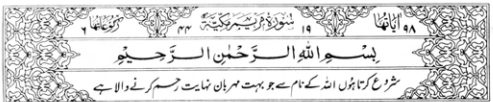 آیاتہا ۹۸ ۱۹ سُوْرَةُ مَرْیَمَ مَکِّیَّةٌ ۴۴ رکوعاتہا ۶
بِسْمِ اللّٰهِ الرَّحْمٰنِ الرَّحِیْمِ
شروع کرتا ہوں اللہ کے نام سے جو بہت مہربان نہایت رحم کرنے والا ہے